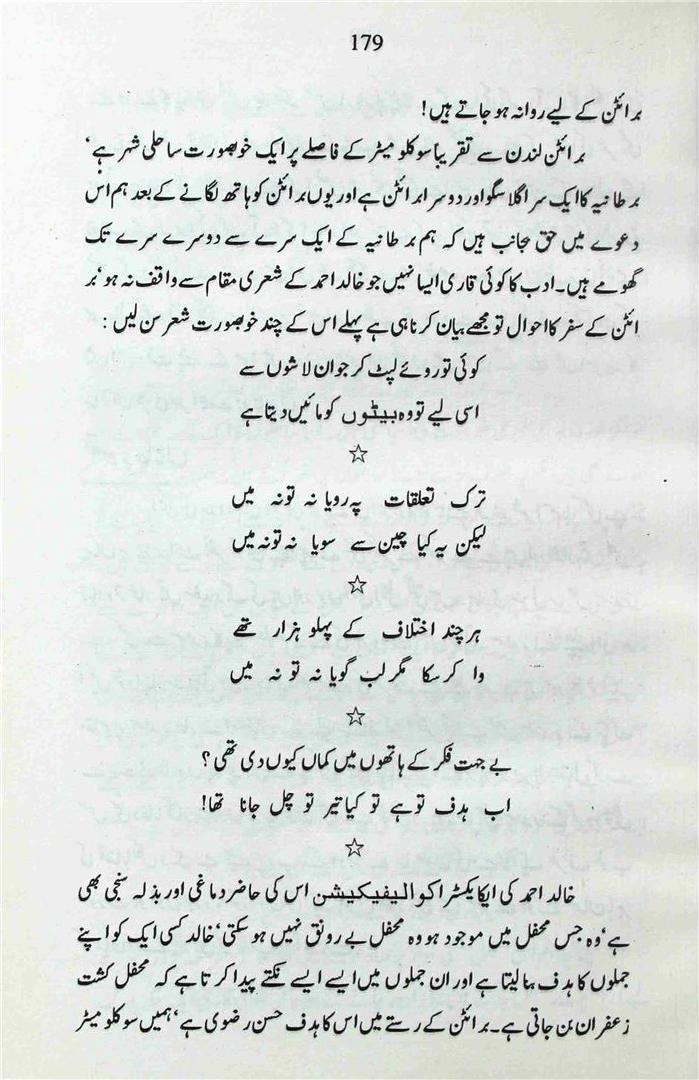 179
برائٹن کے لیے روانہ ہو جاتے ہیں!
برائٹن لندن سے تقریباً سو کلو میٹر کے فاصلے پر ایک خوبصورت ساحلی شہر ہے‘
برطانیہ کا ایک سرا گلاسگو اور دوسرا برائٹن ہے اور یوں برائٹن کو ہاتھ لگانے کے بعد ہم اس
دعوے میں حق بجانب ہیں کہ ہم برطانیہ کے ایک سرے سے دوسرے سرے تک
گھومے ہیں۔ ادب کا کوئی قاری ایسا نہیں جو خالد احمد کے شعری مقام سے واقف نہ ہو‘ بر
ائٹن کے سفر کا احوال تو مجھے بیان کرنا ہی ہے پہلے اس کے چند خوبصورت شعر سن لیں :
کوئی تو روئے لپٹ کر جوان لاشوں سے
اسی لیے تو وہ بیٹوں کو مائیں دیتا ہے
☆
ترک تعلقات پہ رویا نہ تو نہ میں
لیکن یہ کیا چین سے سویا نہ تو نہ میں
☆
ہر چند اختلاف کے پہلو ہزار تھے
وا کر سکا مگر لب گویا نہ تو نہ میں
☆
بے جہت فکر کے ہاتھوں میں کماں کیوں دی تھی ؟
اب ہدف تو ہے تو کیا تیر تو چل جانا تھا!
☆
خالد احمد کی ایک ایکسٹرا کوالیفیکیشن اس کی حاضر دماغی اور بذلہ سنجی بھی
ہے‘ وہ جس محفل میں موجود ہو وہ محفل بے رونق نہیں ہو سکتی‘ خالد کسی ایک کو اپنے
جملوں کا ہدف بنا لیتا ہے اور ان جملوں میں ایسے ایسے نکتے پیدا کرتا ہے کہ محفل کشت
زعفران بن جاتی ہے۔ برائٹن کے رستے میں اس کا ہدف حسن رضوی ہے‘ ہمیں سو کلو میٹر